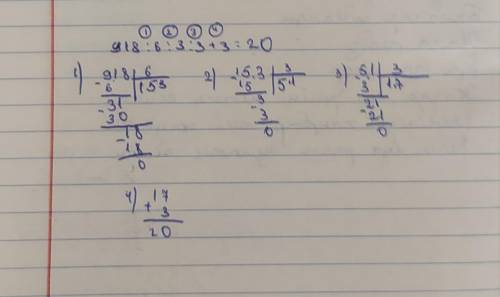 ① ② ③ ④
918 : 6 : 3 : 3 + 3 = 20
1) 918 | 6
- 6 | 153
31
- 30
- 18
18
0
2) - 153 | 3
15 | 51
- 3
3
0
3) - 51 | 3
3 | 17
21
- 21
0
4) 17
+ 3
20